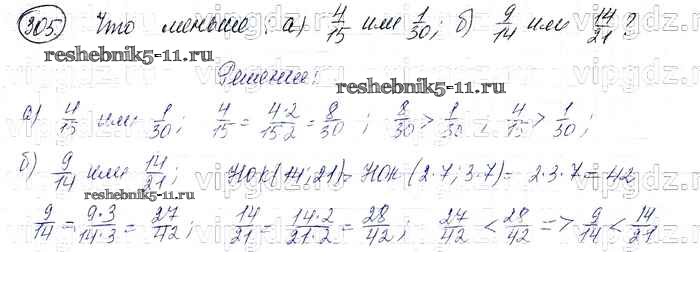 305. Что меньше: а) 4/15 или 1/30; б) 9/14 или 14/21?
reshebnik5-11.ru
reshebnik5-11.ru
Решение:
а) 4/15 или 1/30; 4/15 = 4·2/15·2 = 8/30; 8/30 > 1/30, 4/15 > 1/30;
б) 9/14 или 14/21; НОК(14;21) = НОК(2·7;3·7) = 2·3·7 = 42
reshebnik5-11.ru
9/14 = 9·3/14·3 = 27/42; 14/21 = 14·2/21·2 = 28/42; 27/42 < 28/42 => 9/14 < 14/21
vipgdz.ru